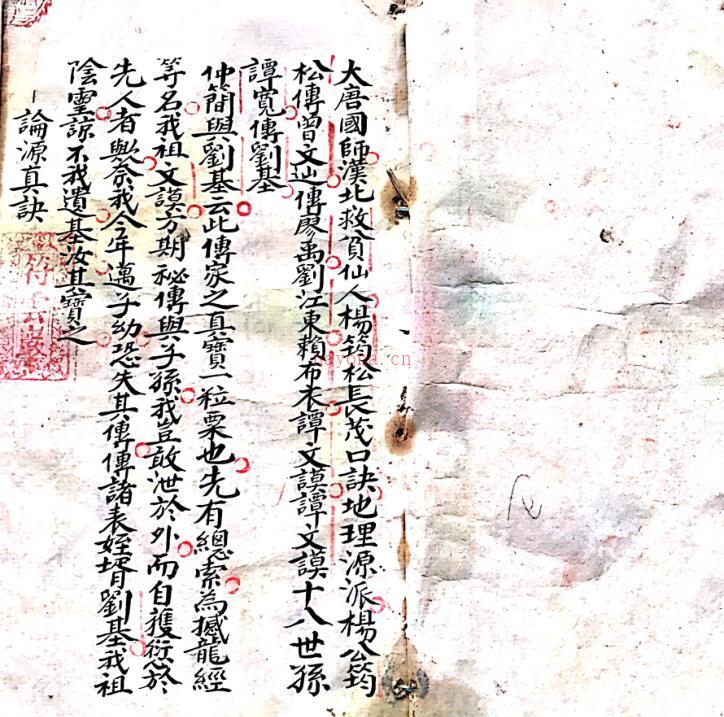 大唐國師漢北救貧仙人楊筠松長茂口訣地理源派楊公筠
松傳曾文辿傳廖禹劉江東賴布衣譚文謨譚文謨十八世孫
譚寬傳劉基
仲簡與劉基云此傳家之真寶一粒粟也先有總索為撼龍經
等名我祖文謨方期秘傳與子孫我豈敢泄於外而自獲愆於
先人者歟奈我今年邁子幼恐失其傳傳諸表姪壻劉基我祖
陰靈諒不我遺基汝其寶之
一論源真訣
nayona.cn